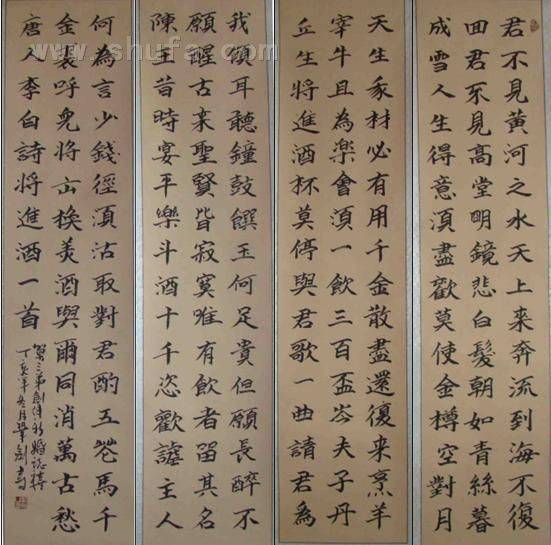 君不見黃河之水天上来奔流到海不復
回君不見高堂明鏡悲白髮朝如青絲暮
成雪人生得意須盡歡莫使金樽空對月
天生我材必有用千金散盡還復来烹羊
宰牛且為樂會須一飲三百盃岑夫子丹
丘生將進酒杯莫停與君歌一曲請君為
我傾耳聽鐘鼓饌玉何足貴但願長醉不
願醒古来聖賢皆寂寞唯有飲者留其名
陳王昔時宴平樂斗酒十千恣歡謔主人
何為言少錢徑須沽取對君酌五花馬千
金裘呼兒將出換美酒與爾同消萬古愁
唐人李白詩將進酒一首
賀三弟新婚誌禧
丁亥年冬月書
www.shufa.com